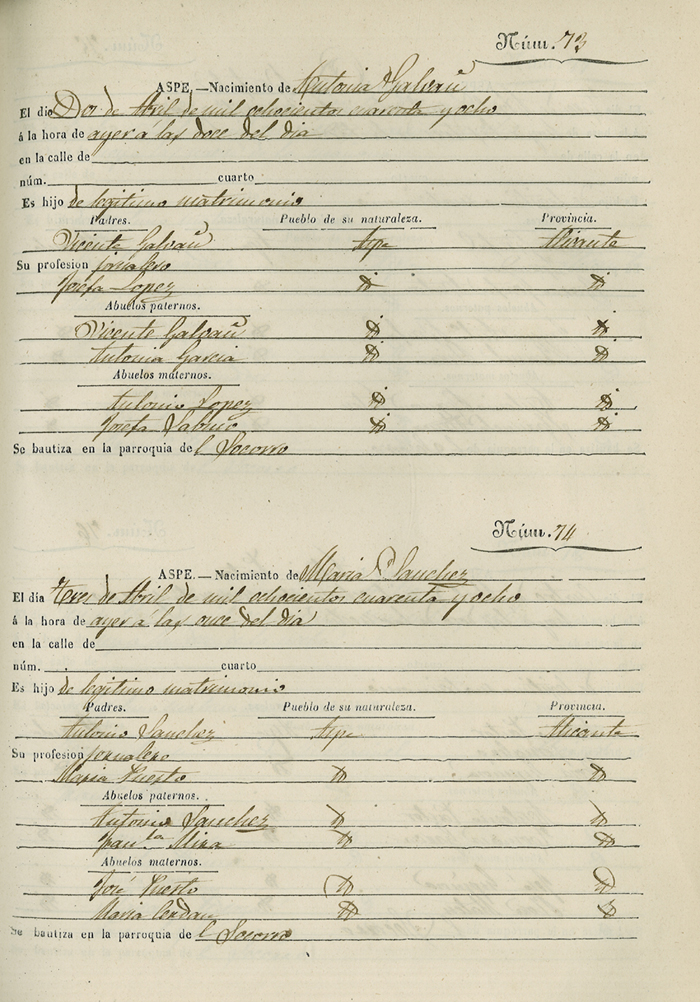 Núm. 73
ASPE.—Nacimiento de Antonia Galvañ
El dia Dos de Abril de mil ochocientos cuarenta y ocho
á la hora de ayer á las doce del dia
en la calle de
núm. cuarto
Es hijo de legitimo matrimonio
Padres. Pueblo de su naturaleza. Provincia.
Vicente Galvañ Aspe Alicante
Su profesion jornalero
Josefa Lopez id id
Abuelos paternos.
Vicente Galvañ id id
Antonia Garcia id id
Abuelos maternos.
Antonio Lopez id id
Josefa id id
Se bautiza en la parroquia de l Socorro
Núm. 74
ASPE.—Nacimiento de Maria Sanchez
El dia Tres de Abril de mil ochocientos cuarenta y ocho
á la hora de ayer á las once del dia
en la calle de
núm. cuarto
Es hijo de legitimo matrimonio
Padres. Pueblo de su naturaleza. Provincia.
Antonio Sanchez Aspe Alicante
Su profesion jornalero
Maria Puerto id id
Abuelos paternos.
Antonio Sanchez id id
Fran.ca Mira id id
Abuelos maternos.
José Puerto id id
Maria Cerdan id id
Se bautiza en la parroquia de l Socorro